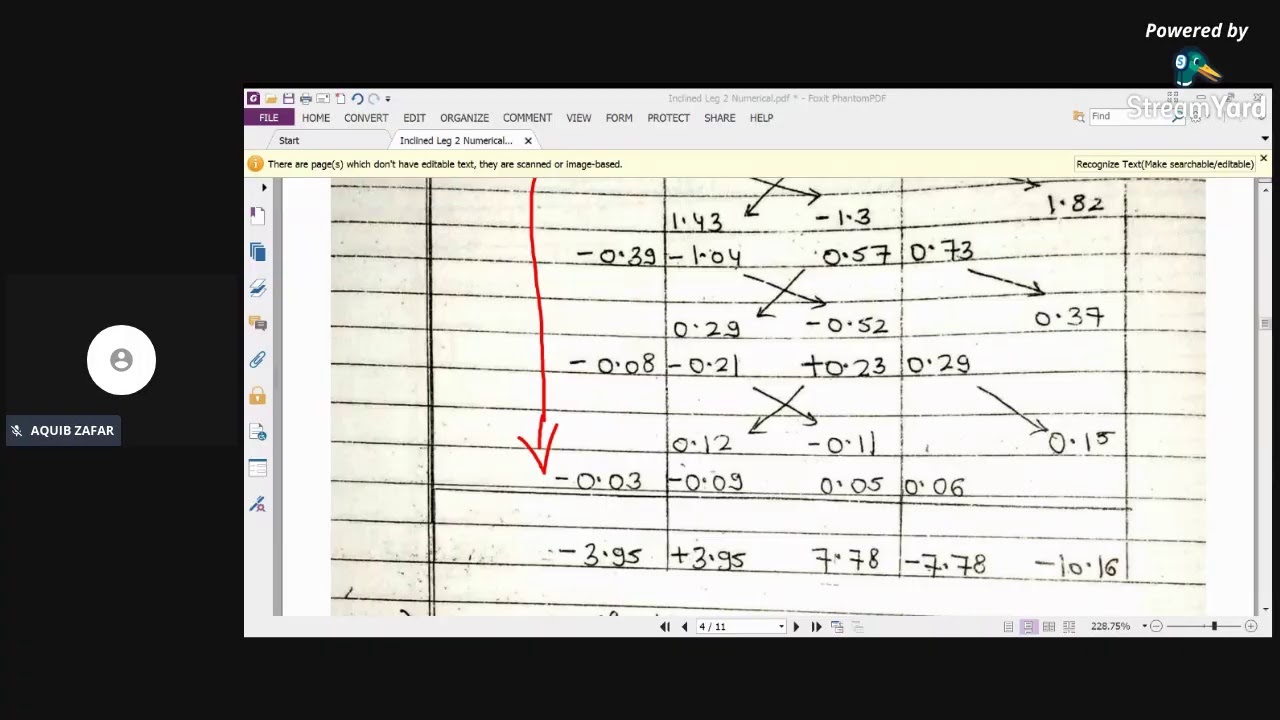 Powered by
StreamYard
Inclined Leg 2 Numerical.pdf * - Foxit PhantomPDF
FILE HOME CONVERT EDIT ORGANIZE COMMENT VIEW FORM PROTECT SHARE HELP
Find
Start Inclined Leg 2 Numerical...
There are page(s) which don't have editable text, they are scanned or image-based.
Recognize Text(Make searchable/editable)
1.43 -1.3 1.82
-0.39 -1.04 0.57 0.73
0.29 -0.52 0.37
-0.08 -0.21 +0.23 0.29
0.12 -0.11 0.15
-0.03 -0.09 0.05 0.06
-3.95 +3.95 7.78 -7.78 -10.16
AQUIB ZAFAR
4 / 11
228.75%